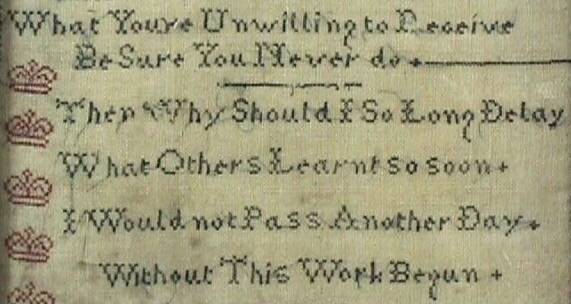 What Youre Unwilling to Receive
Be Sure You Never do
Then Why Should I So Long Delay
What Others Learnt so soon
I Would not Pass Another Day
Without This Work Begun